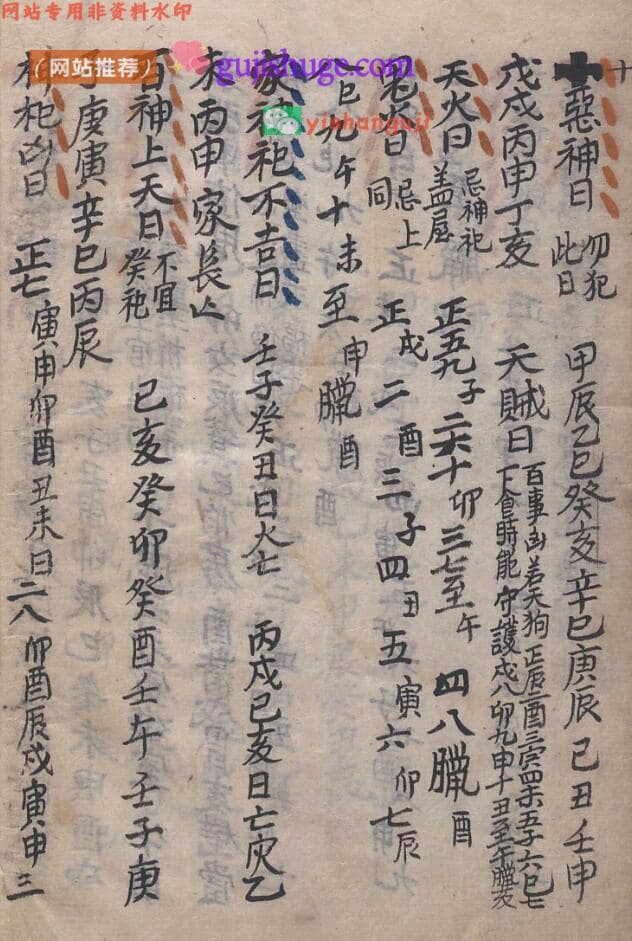 网站专用非资料水印
(网站推荐)
gujishuge.com
yinhanguji
十
惡神日 勿犯此日 甲辰乙巳癸亥辛巳庚辰己丑壬申
戊戌丙申丁亥 天賊日 百事凶若天狗 正辰二酉三寅四未五子六巳七
下食時能守護 戌八卯九申十丑至午臘亥
天火日 忌神祀盖屋 正五九子 二六十卯 三七至午 四八臘酉
日 忌上同 正戌二酉三子四丑五寅六卯七辰
八巳九午十未至申臘酉
家神祀不吉日 壬子癸丑日火七 丙戌己亥日亡灾乙
未丙申家長亡
百神上天日 不宜祀 己亥癸卯癸酉壬午壬子庚
庚寅辛巳丙辰
祀凶日 正七寅申卯酉丑未日二八卯酉辰戌寅申三